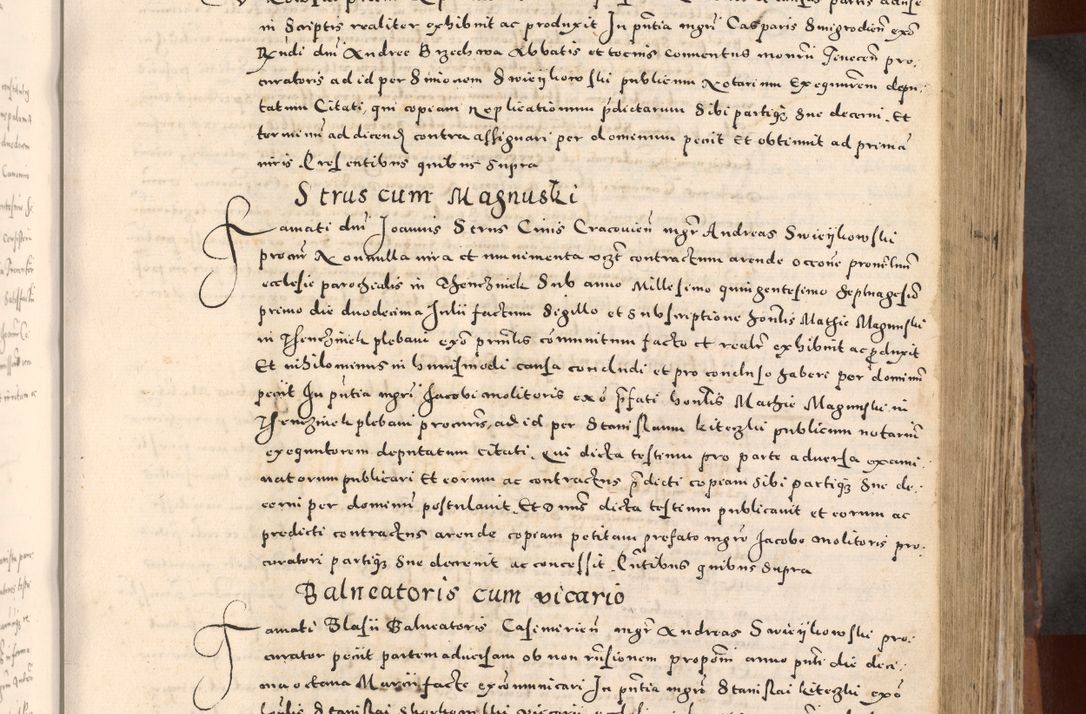 in Scriptis realiter exhibuit ac produxit In pñtia mgri Casparis Smigrodien exõ
Rndi dni Andree Brzechwa Abbatis et tocius Conuentus monrii Tinecen pro-
curatoris ad id per Simonem Swieijkowski publicum Notarium Exequutorem depu-
tatum Citati, qui copiam Replicationum pdictarum Sibi partiq; Sue decerni. Et
terminum ad dicend contra assignari per dominum peciit Et obtinuit ad primã
iuris. Presentibus quibus supra
Strus cum Magnuski
Famati dni Joannis Strus Ciuis Cracouien mgr Andreas Swieijkowski
procur Nonnulla iura et munimenta vzt contractum arende occone prouentuum
ecclesie parochialis in Thenchinek Sub anno Millesimo quingentesimo septuagesimo
primo die duodecima Julii factum sigillo et Subscriptione honlis Mathie Magnuski
in Thenchinek plebani exõ pntis communitum facto et realr exhibuit ac produxit
Et nihilominus in huiusmodi causa concludi et pro concluso haberi per dominum
peciit In pñtia mgri Jacobi molitoris exõ pfati honlis Mathie Magnuski in
Thenchinek plebani procuris, ad id per Stanislaum Kiteczki publicum notarium
exequutorem deputatum citati. Qui dicta testium pro parte aduersa exami-
natorum publicari Et eorum ac contractus pdicti copiam sibi partiq; Sue de-
cerni per dominum postulauit. Et Dnus dicta testium publicauit et eorum ac
predicti contractus arende copiam petitam prefato mgro Jacobo molitoris pro-
curatori partiq; Sue decreuit ac concessit. Pñtibus quibus Supra
Balneatoris cum vicario
Famati Blasii Balneatoris Casimirien mgr Andreas Swieijkowski pro-
curator peciit partem aduersam ob non rñsionem proponi anno pnti die deci-
ma octaua Marcii facte excommunicari In pñtia mgri Stanislai Kiteczki exõ